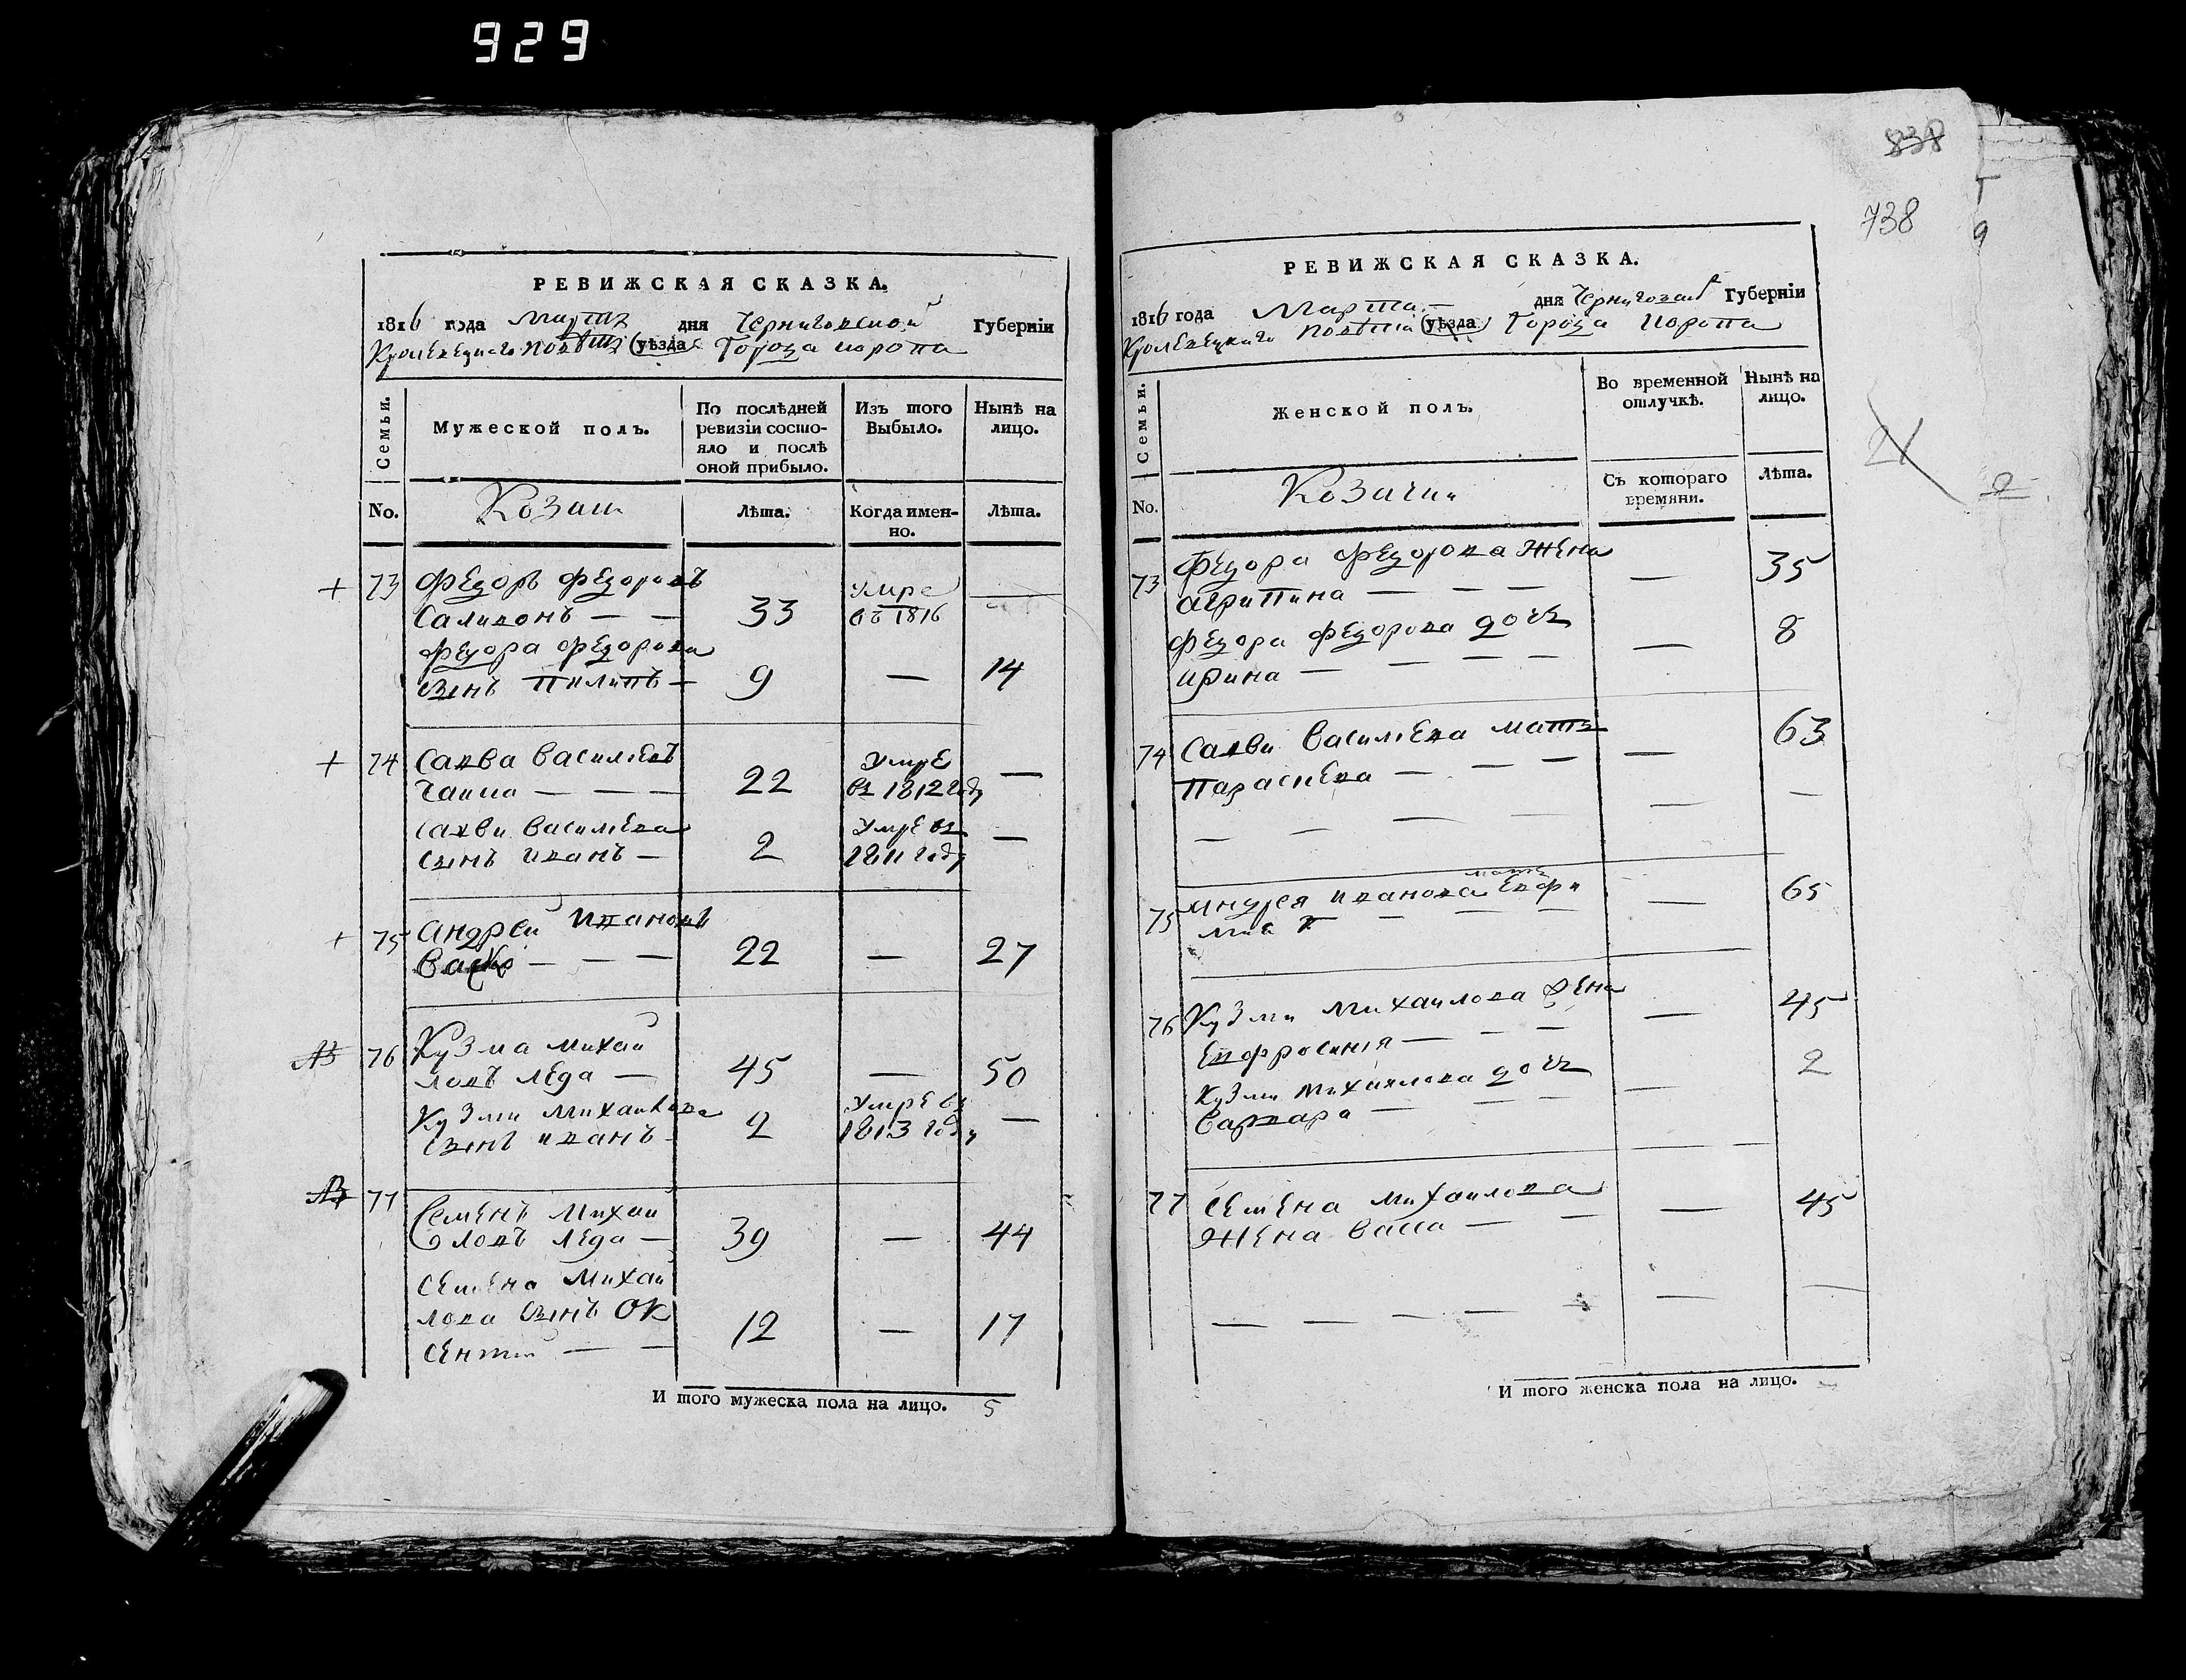 929
РЕВИЖСКАЯ СКАЗКА.
1816 года Марта дня Черниговской Губерніи
Кролевецкаго повѣта (уѣзда) Города Коропа
Семьи.
Мужеской полъ.
По послѣдней ревизіи состо-
яло и послѣ
оной прибыло.
Изъ того
Выбыло.
Нынѣ на
лицо.
No.
Козаки
Лѣта.
Когда имен-
но.
Лѣта.
+ 73 Федоръ Федоровъ
— — 33 Умре въ 1816 —
Федора Федорова
сынъ Пилипъ — 9 — 14
+ 74 Савва Васильевъ
— — — 22 Умре въ 1812 году —
Савви Васильева
сынъ Иванъ — 2 Умре въ 1811 году —
+ 75 Андрей Ивановъ
— — — 22 — 27
76 Кузма Михай
ловъ Леда — 45 — 50
Кузми Михайлова
сынъ Иванъ 2 Умре въ 1813 году —
77 Семенъ Михай
ловъ Леда — 39 — 44
Семена Михай
лова сынъ Ок
сентій — — 12 — 17
И того мужеска пола на лицо. 5
838
738
РЕВИЖСКАЯ СКАЗКА.
1816 года Марта — дня Черниговской Губерніи
Кролевецкаго повѣта (уѣзда) Города Коропа
Семьи.
Женской полъ.
Во временной
отлучкѣ.
Нынѣ на
лицо.
21
No.
Козачки
Съ котораго
времяни.
Лѣта.
73 Федора Федорова жена
Агрипина — — — — 35
Федора Федорова дочь
Ирина — — — — — 8
74 Савви Васильева мать
Параскева — — — — 63
— — — — — —
75 Андрея Иванова мать Евфи
мія — — — — 65
76 Кузми Михайлова жена
Евфросинія — — — — 45
Кузми Михайлова дочь
Варвара — — — — 2
77 Семена Михайлова
жена — — — 45
— — — — — — —
И того женска пола на лицо. —